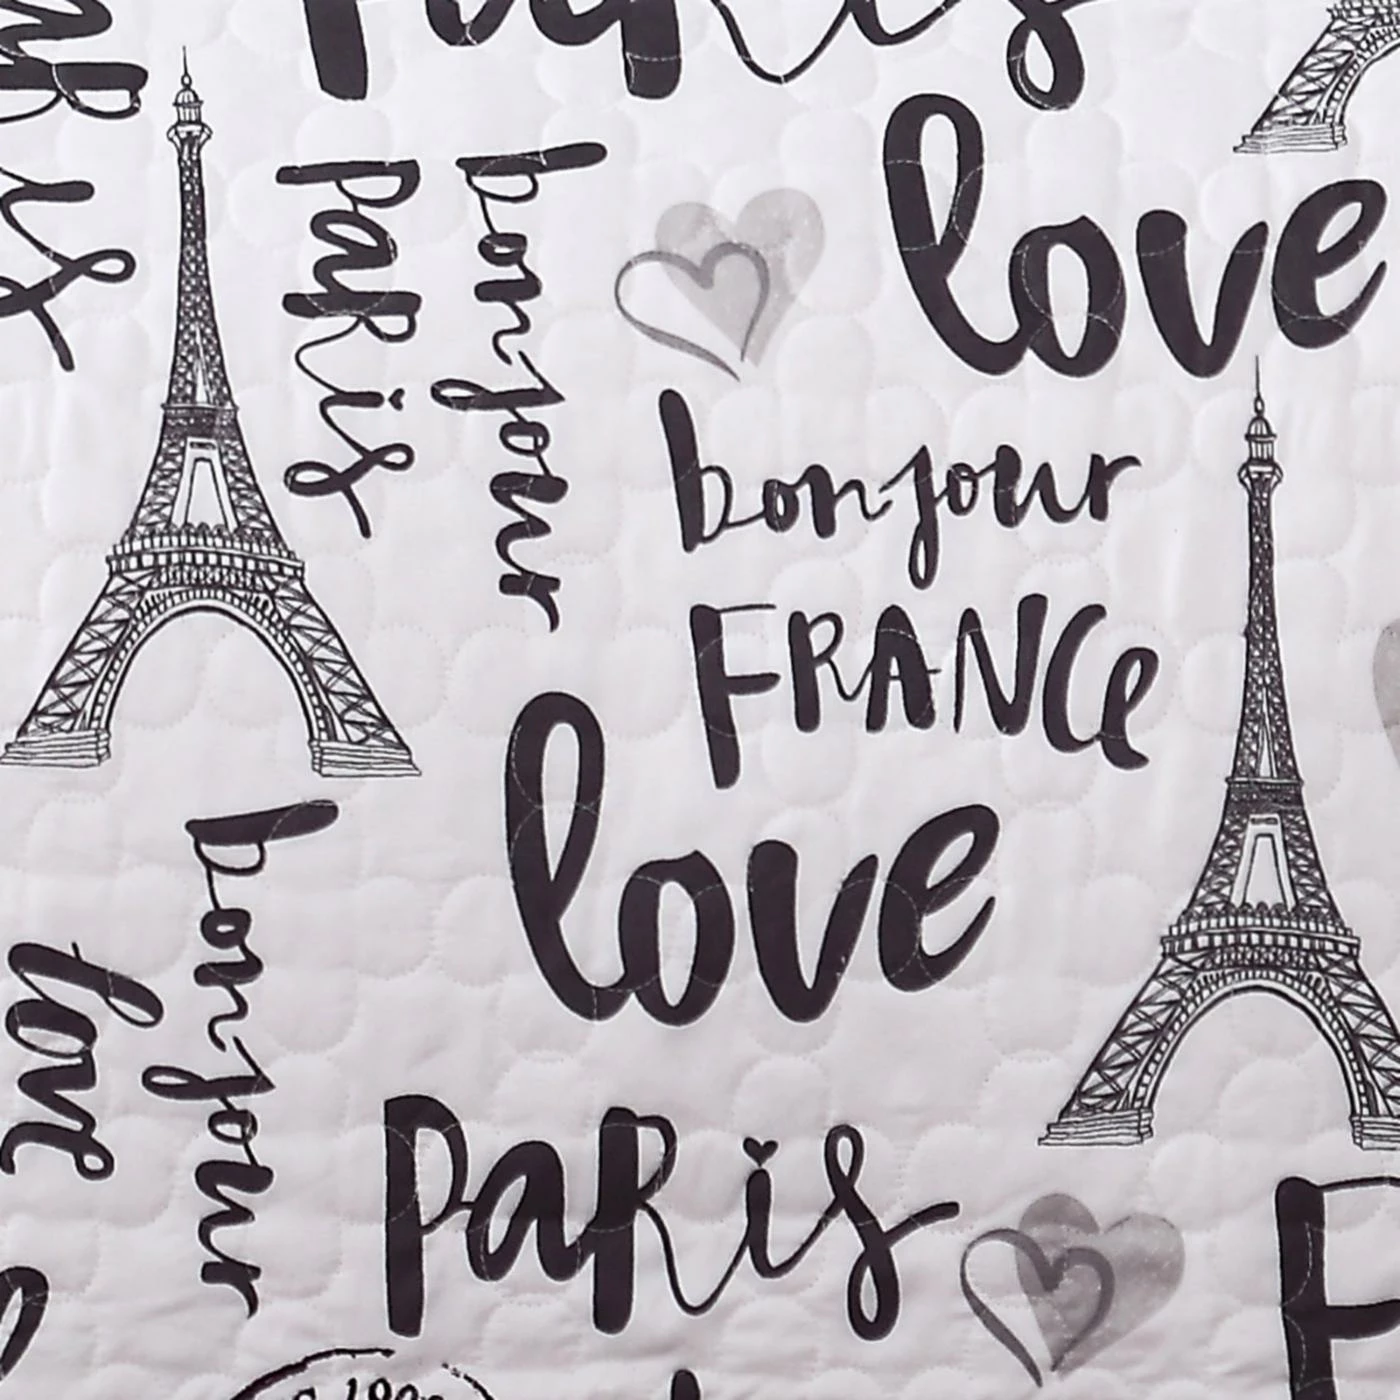 Paris
PaRis
love
PaRis
bonjour
bonjour
FRANCe
love
bonjour
love
PaRis